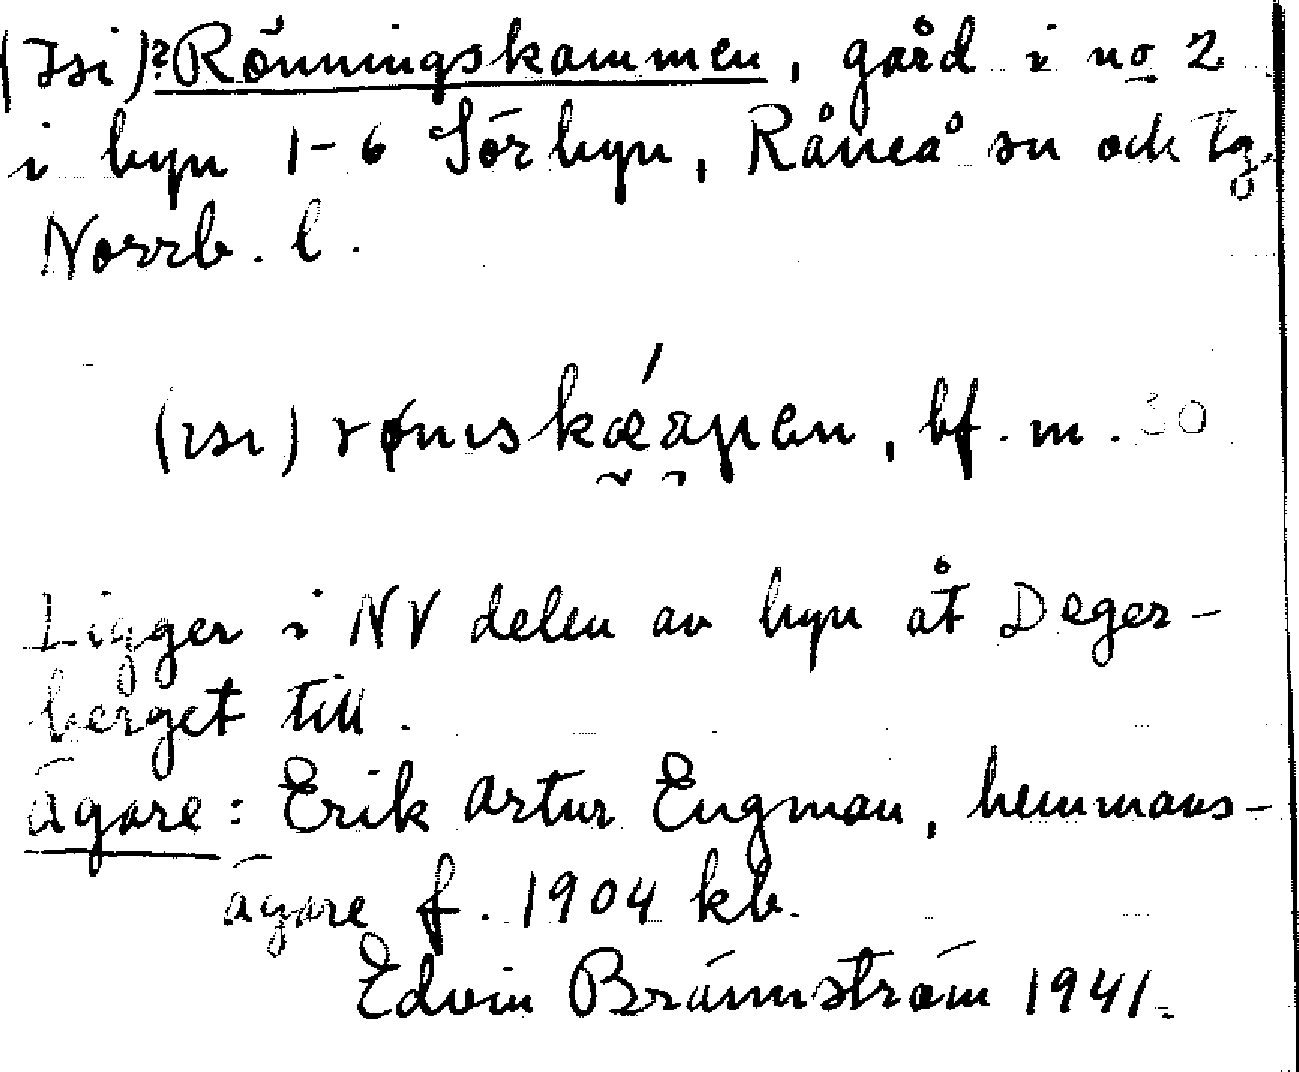 (Isi)? Rönningskammen, gård i no 2
i byn 1-6 Sörbyn, Råneå sn och tg.
Norrb. l.
(ısı) rønıskæ´ a̯men, bf. m. 30
Ligger i NV delen av byn åt Deger-
berget till.
Ägare: Erik Artur Engman, hemmans-
ägare f. 1904 kb.
Edvin Brännström 1941.